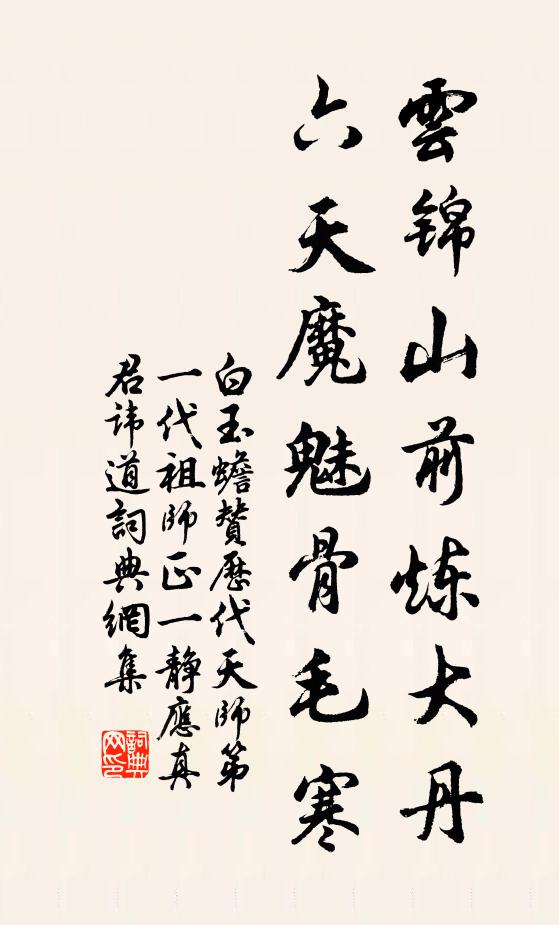 雲錦山前炼大丹
六天魔魅骨毛寒
白玉蟾赞歷代天師第
一代祖師正一靜應真
君諱道詞典網集
詞典网印